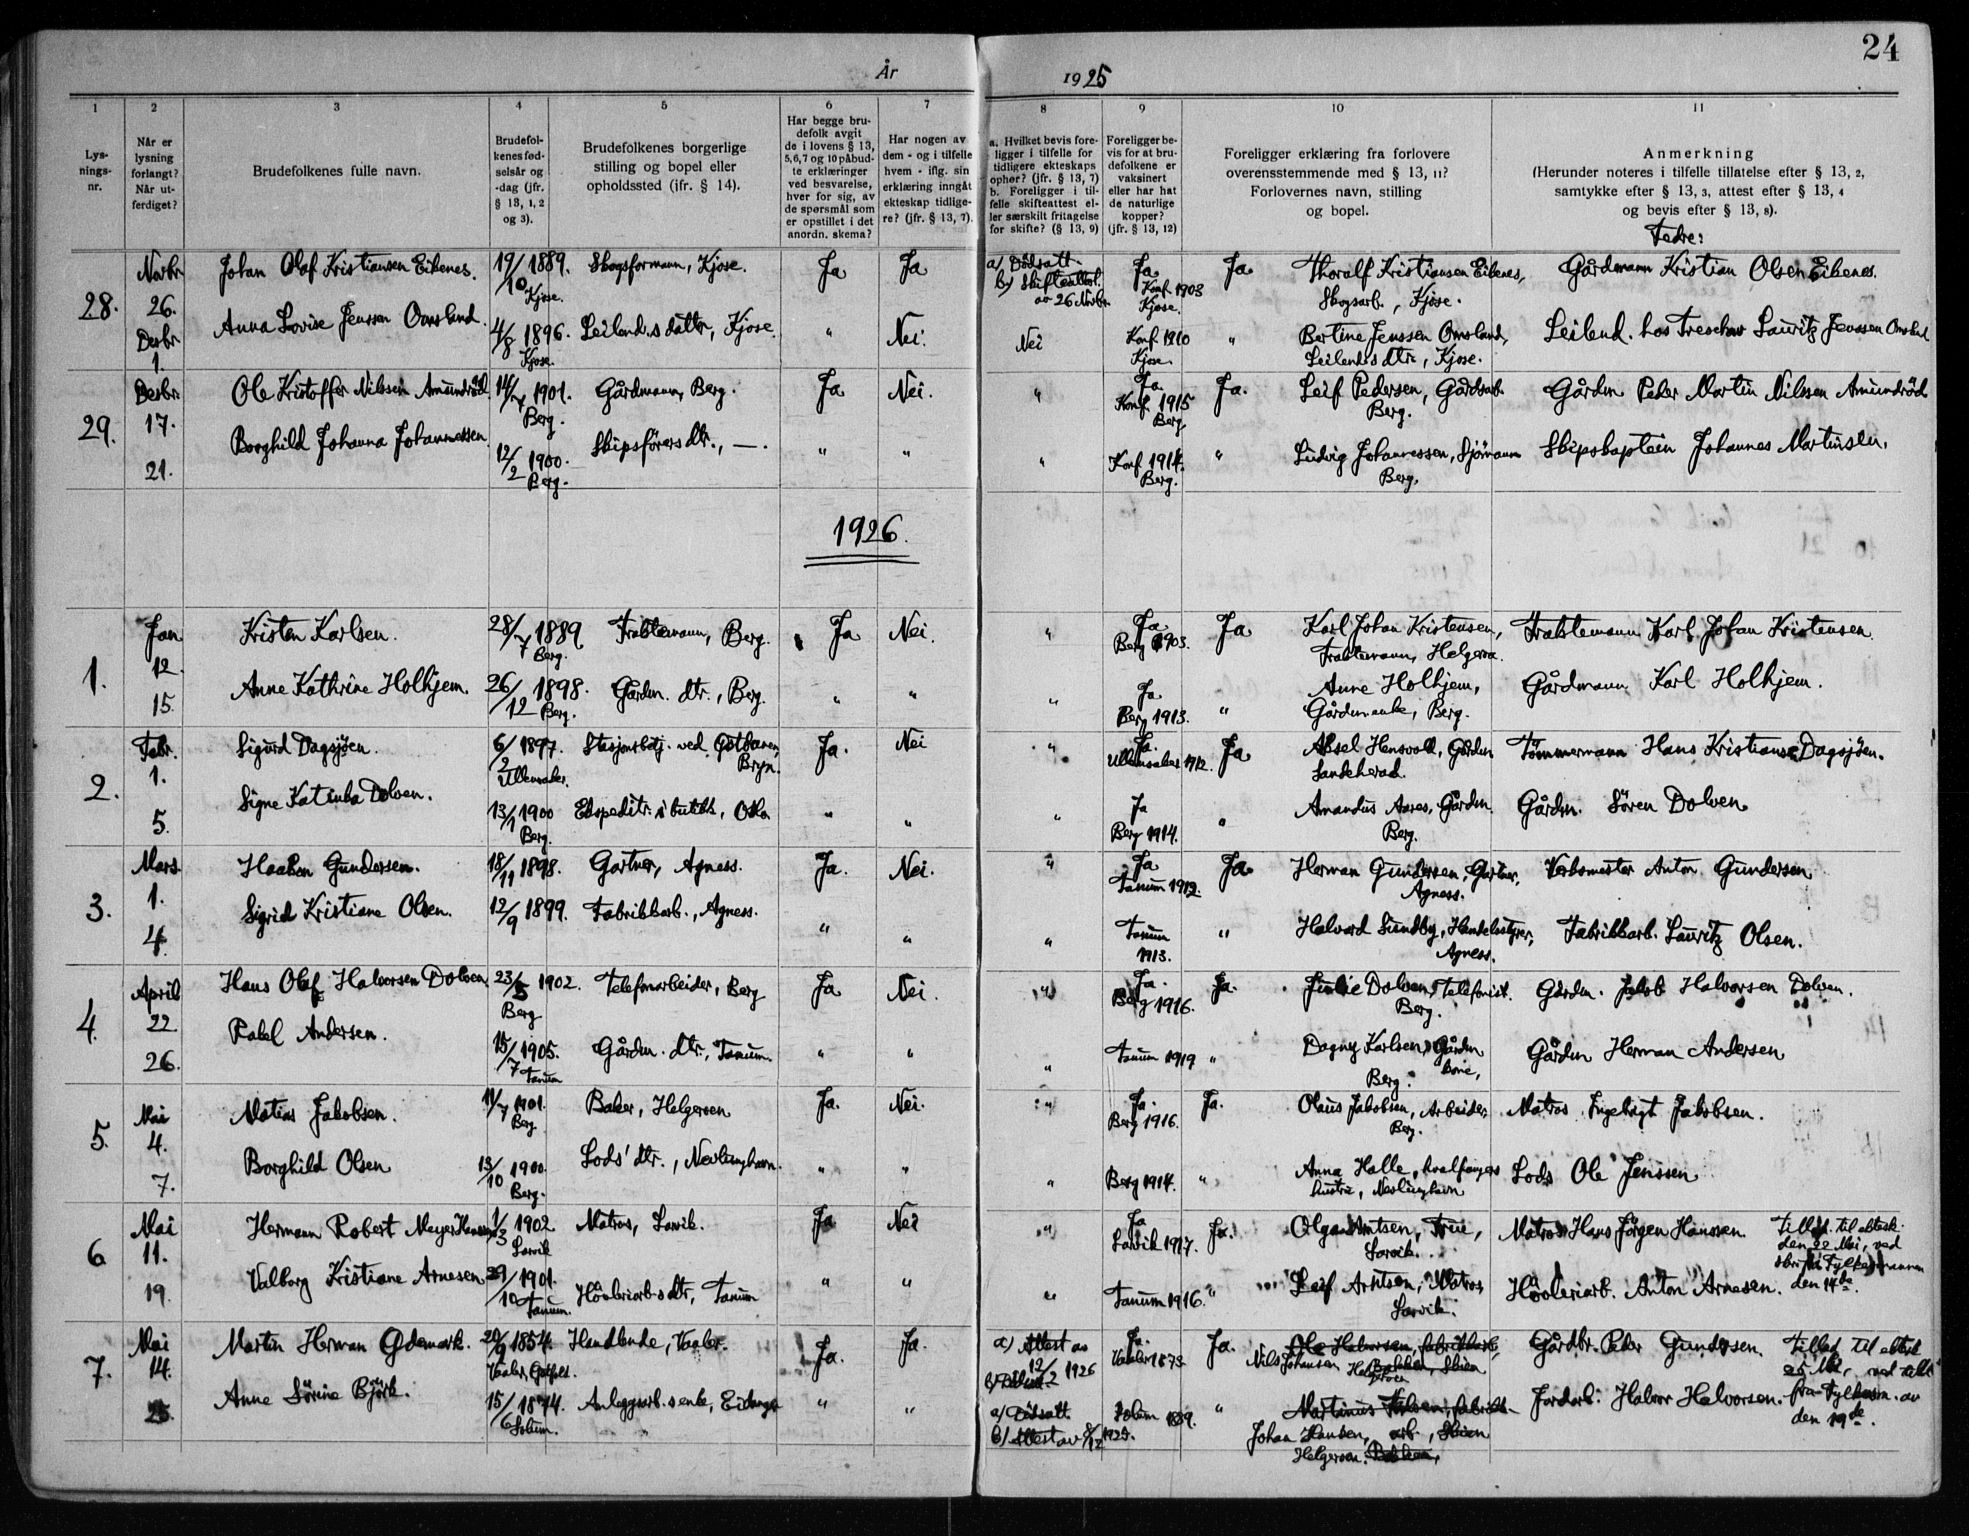 24
År 1925
1 2 3 4 5 6 7 8 9 10 11
Lys-
nings-
nr.
Når er
lysning
forlangt?
Når ut-
ferdiget?
Brudefolkenes fulle navn.
Brudefol-
kenes fød-
selsår og
-dag (jfr.
§ 13, 1, 2
og 3).
Brudefolkenes borgerlige
stilling og bopel eller
opholdssted (ifr. § 14).
Har begge bru-
defolk avgit
de i lovens § 13,
5,6,7 og 10 påbud-
te erklæringer
ved besvarelse,
hver for sig, av
de spørsmål som
er opstillet i det
anordn. skema?
Har nogen av
dem - og i tilfelle
hvem - iflg. sin
erklæring inngåt
ekteskap tidlige-
re? (jfr. § 13, 7).
a. Hvilket bevis fore-
ligger i tilfelle for
tidligere ekteskaps
ophør? (jfr. § 13, 7)
b. Foreligger i til-
felle skifteattest el-
ler særskilt fritagelse
for skifte? (§ 13, 9)
Foreligger be-
vis for at bru-
defolkene er
vaksinert
eller har hat
de naturlige
kopper?
(jfr. § 13, 12)
Foreligger erklæring fra forlovere
overensstemmende med § 13, 11?
Forlovernes navn, stilling
og bopel.
Anmerkning
(Herunder noteres i tilfelle tillatelse efter § 13, 2,
samtykke efter § 13, 3, attest efter § 13, 4
og bevis efter § 13, 8).
Fedre:
28.
Novbr. 26.
Desbr. 1.
Johan Olaf Kristiansen Eikenes.
19/10 1889. Kjose.
Skogsformann, Kjose.
Ja
Ja
a) Dødsatt.
b) Skifteattest.
av 26 Novbr.
Ja
Konf. 1903
Kjose.
Ja
Thoralf Kristiansen Eikenes,
Skogsarb., Kjose.
Gårdmann Kristian Olsen Eikenes.
Anna Lovise Jenssen Omsland.
4/8 1896. Kjose.
Leilend.s datter, Kjose.
" Nei.
Nei
Konf. 1910
Kjose.
"
Bertine Jenssen Omsland,
Leilend.s dtr., Kjose.
Leilend. hos Treschow Lauritz Jenssen Omsland
29.
Desbr. 17.
21.
Ole Kristoffer Nilssen Amundrød
14/4 1901. Berg.
Gårdmann, Berg.
Ja Nei.
"
Ja.
Konf. 1915
Berg
Ja.
Leif Pedersen, Gårdsarb.
Berg.
Gårdm. Peder Martin Nilssen Amundrød
Borghild Johanna Johannessen
12/2 1900. Berg.
Skipsførers dtr., —.
" "
"
Konf. 1914.
Berg.
"
Ludvig Johannessen, Sjømann
Berg.
Skipskaptein Johannes Martinsen.
1926.
1.
Jan. 12.
15.
Kristen Karlsen.
28/7 1889 Berg.
Fraktemann, Berg.
Ja Nei.
"
Ja
Berg 1903.
Ja
Karl Johan Kristensen,
Fraktemann, Helgeroa.
Fraktemann Karl Johan Kristensen
Anne Kathrine Holhjem.
26/12 1898. Berg.
Gårdm. dtr., Berg.
" "
"
Ja
Berg 1913.
"
Anne Holhjem,
Gårdmenke, Berg.
Gårdmann Karl Holhjem.
2.
Febr. 1.
5.
Sigurd Dagsjøen.
6/2 1897. Ullensaker.
Stasjonsbetj. ved Gjøtbanen,
Bryn.
Ja. Nei
"
Ja.
Ullensaker 1912.
Ja
Aksel Hensvold, Gårdm.
Sandeherad.
Tømmermann Hans Kristiansen Dagsjøen.
Signe Katinka Dolven.
13/1 1900 Berg.
Ekspeditr. i butikk, Oslo.
" "
"
Ja
Berg 1914.
"
Amandus Aares, Gårdm.
Berg.
Gårdm. Søren Dolven
3.
Mars 1.
4.
Haakon Gundersen.
18/11 1898.
Gartner, Agness.
Ja. Nei.
"
Ja
Tanum 1912.
Ja.
Herman Gundersen, Gartner,
Agness.
Verksmester Anton Gundersen
Sigrid Kristiane Olsen.
12/9 1899.
Fabrikkarb., Agness.
" "
"
Tanum
1913.
"
Halvard Sundby, Handelsstyrer,
Agness.
Fabrikkarb. Lauritz Olsen.
4.
April 22.
26.
Hans Olaf Halvorsen Dolven
23/5 1902. Berg
Telefonarbeider, Berg
Ja Nei.
"
Ja.
Berg 1916.
Ja.
Julie Dolven, Telefonist.
Berg.
Gårdm. Jakob Halvorsen Dolven.
Rakel Andersen.
15/7 1905. Tanum
Gårdm. dtr., Tanum.
" "
"
Tanum 1919
"
Dagny Karlsen, Gårdm
kone, Berg.
Gårdm Herman Andersen
5.
Mai 4.
7.
Matias Jakobsen.
11/7 1901. Berg
Baker, Helgeroen
Ja. Nei.
"
Ja.
Berg 1916.
Ja.
Olaus Jakobsen, Arbeider,
Berg.
Matros Ingebrigt Jakobsen.
Borghild Olsen
13/10 1900. Berg.
Lods' dtr., Nevlunghavn.
" "
"
Berg 1914.
"
Anna Halle, hvalfangers
hustru, Nevlunghavn
Lods Ole Jenssen
6
Mai 11.
19.
Hermann Robert Meyer Hanssen
1/3 1902 Larvik
Matros, Larvik.
Ja Nei
"
Ja
Larvik 1917.
Ja.
Olga Arntsen, Frue,
Larvik.
Matros Hans Jörgen Hanssen.
Tillat. til ektesk.
den 22 Mai, ved
skr. fra Fylkesmannen
den 14de.
Valborg Kristiane Arnesen
29/10 1901. Tanum.
Høvleriarb.s dtr, Tanum
" "
"
Tanum 1916.
"
Leif Arntsen, Matros,
Larvik.
Høvleriarb. Anton Arnesen.
7.
Mai 14.
25.
Martin Herman Ødemark.
20/9 1854. Vaaler,
Handlende, Vaaler.
Ja. Ja.
a) Attest av
12/2 1926
Ja.
Vaaler 1873.
Ja.
Ole Halvorsen, fabrikkarb.,
Nils Johansen Helgeroen
Gårdbr. Peder Gundersen.
Tillat. til ektesk.
25 Mai, ved
fra Fylkesm. av
den 19de.
Anne Sörine Björk.
15/6 1874. Solum.
Anleggsarb.s enke, Eidanger
" "
a) Dødsatt.
b) Attest av 8/12 1925.
Solum 1889.
"
Martinus
Johan Hansen, arb., Skien
Helgeroen.
Jordarb. Halvor Halvorsen.